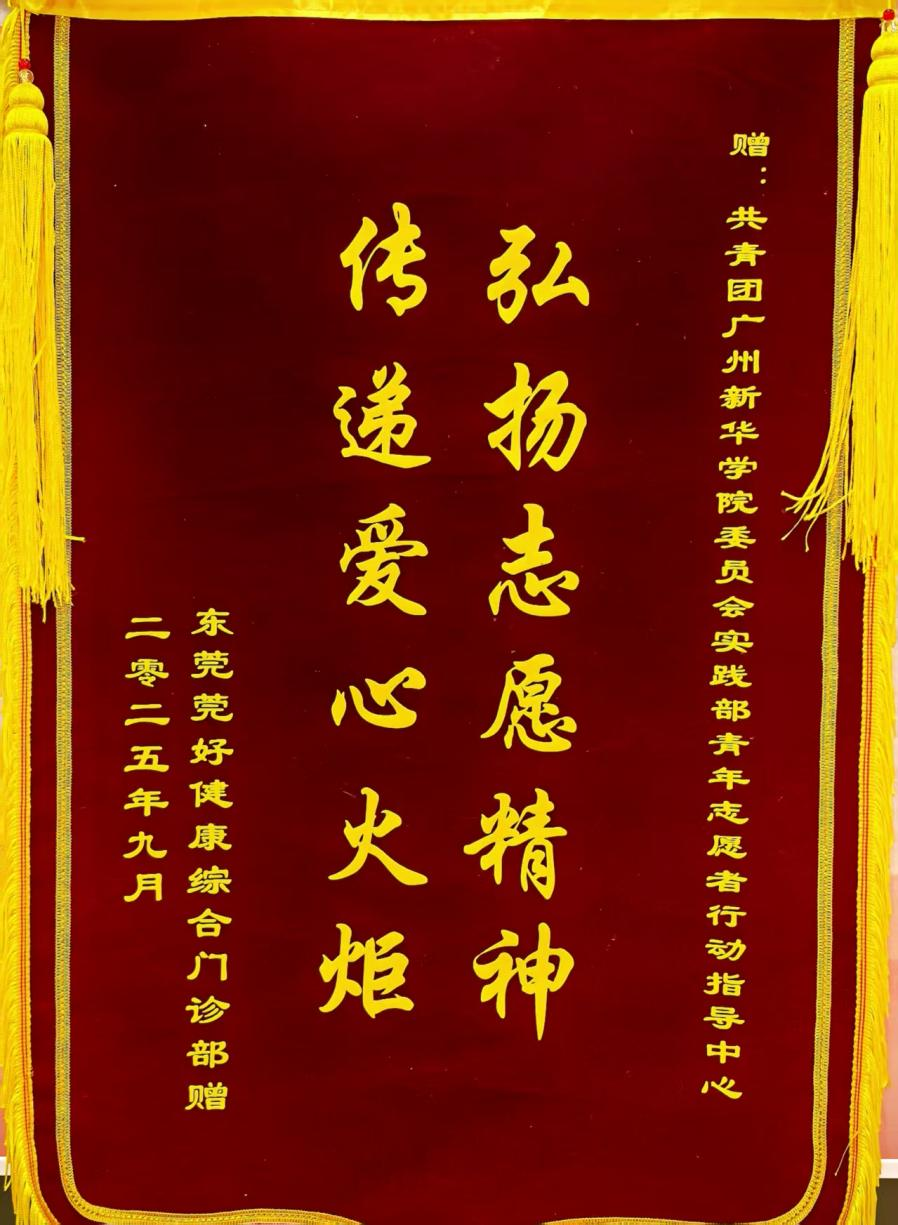 赠：共青团广州新华学院委员会实践部青年志愿者行动指导中心
弘扬志愿精神
传递爱心火炬
东莞莞好健康综合门诊部赠
二零二五年九月